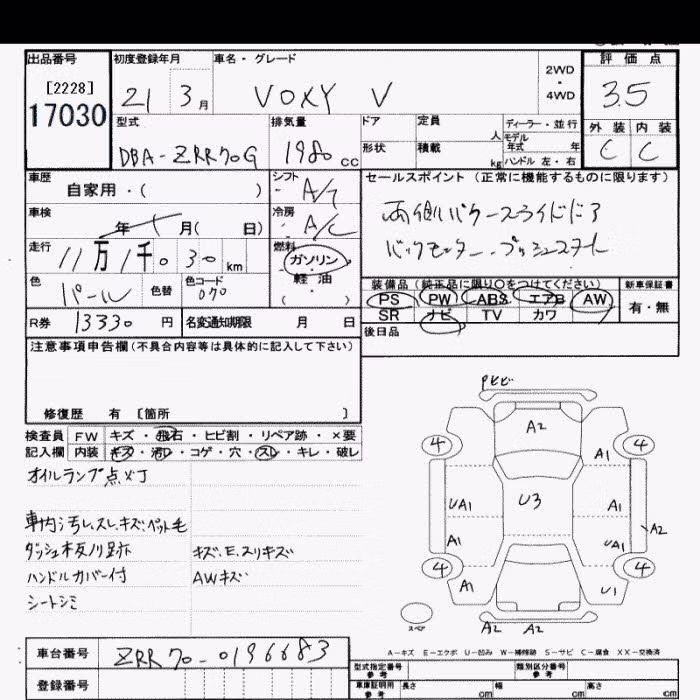 出品番号 初度登録年月 車名・グレード 2WD・4WD 評価点
[2228]
17030
21 3月 VOXY V 3.5
型式 排気量 ドア 定員 人 ディーラー・並行 外装 内装
モデル年式 年
DBA-ZRR70G 1980cc 形状 積載 kg ハンドル 左・右 C C
車歴 シフト A/T セールスポイント(正常に機能するものに限ります)
自家用・( )
両側パワースライドドア
車検 年 月( 日) 冷房 A/C
バックモニター.プッシュスタート
走行 11万1千030km 燃料 ガソリン・軽油・( )
色 パール 色替 色コード 070
装備品(純正品に限り〇をつけてください) 新車保証書
PS PW ABS エアB AW 有・無
SR ナビ TV カワ
R券 13330円 名変通知期限 月 日 後日品
注意事項申告欄(不具合内容等は具体的に記入して下さい)
修復歴 有 [箇所 ]
検査員 FW キズ・飛石・ヒビ割・リペア跡・×要
記入欄 内装 キズ・汚レ・コゲ・穴・スレ・キレ・破レ
オイルランプ点灯
車内汚レ.スレ.キズ.ペット毛
ダッシュ板ノリ跡 キズ.E.スリキズ
ハンドルカバー付 AWキズ
シートシミ
A2
4 4
A1
UA1 U3 A1
A2
A1 UA1
4 4
A1 U1
スペア
A2 A2
A-キズ E-エクボ U-凹み W-補修跡 S-サビ C-腐食 XX-交換済
車台番号 ZRR70-0196683
型式指定番号 参考 類別区分番号 参考
登録番号
車庫証明用 参考 長さ cm 幅 cm 高さ cm